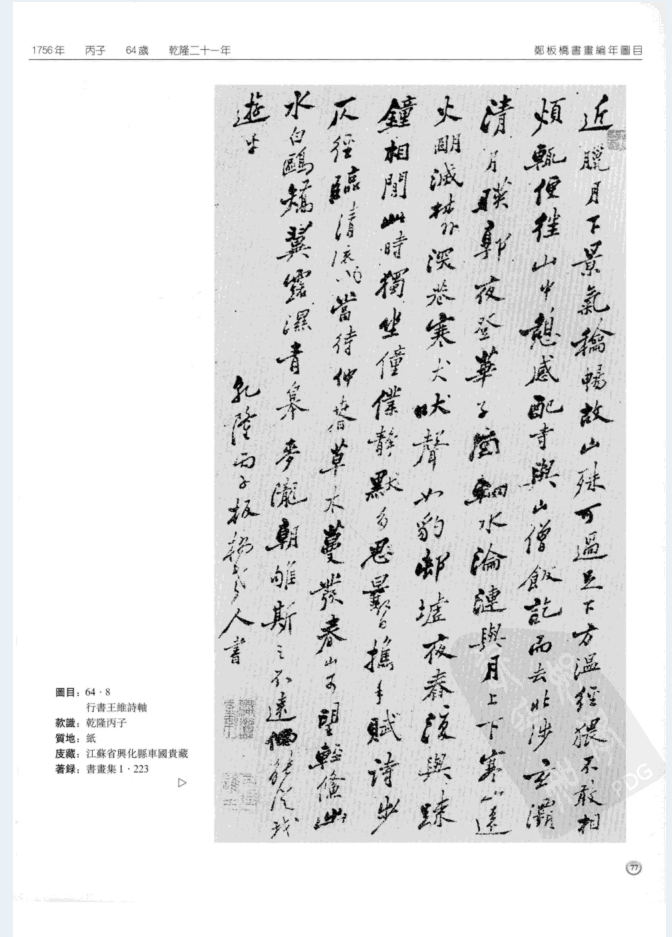 1756年 丙子 64歲 乾隆二十一年
鄭板橋書畫編年圖目
近臘月下景氣龢暢故山殊可過足下方溫經猥不敢相
煩輒便往山中憩感配寺與山僧飯訖而去北涉玄灞
清月暎郭夜登華子崗輞水淪漣與月上下寒山遠
火明滅林外深巷寒犬吠聲如豹邨墟夜舂復與疎
鐘相間此時獨坐僮僕靜默多思曩昔攜手賦詩步
仄徑臨清流當待仲春草木蔓發春山可望輕鯈出
水白鷗矯翼露濕青皋麥隴朝雊斯之不遠儻能從我
遊乎
乾隆丙子板橋人書
圖目：64·8
行書王維詩軸
款識：乾隆丙子
質地：紙
庋藏：江蘇省興化縣車國貴藏
著錄：書畫集1·223
77
PDG